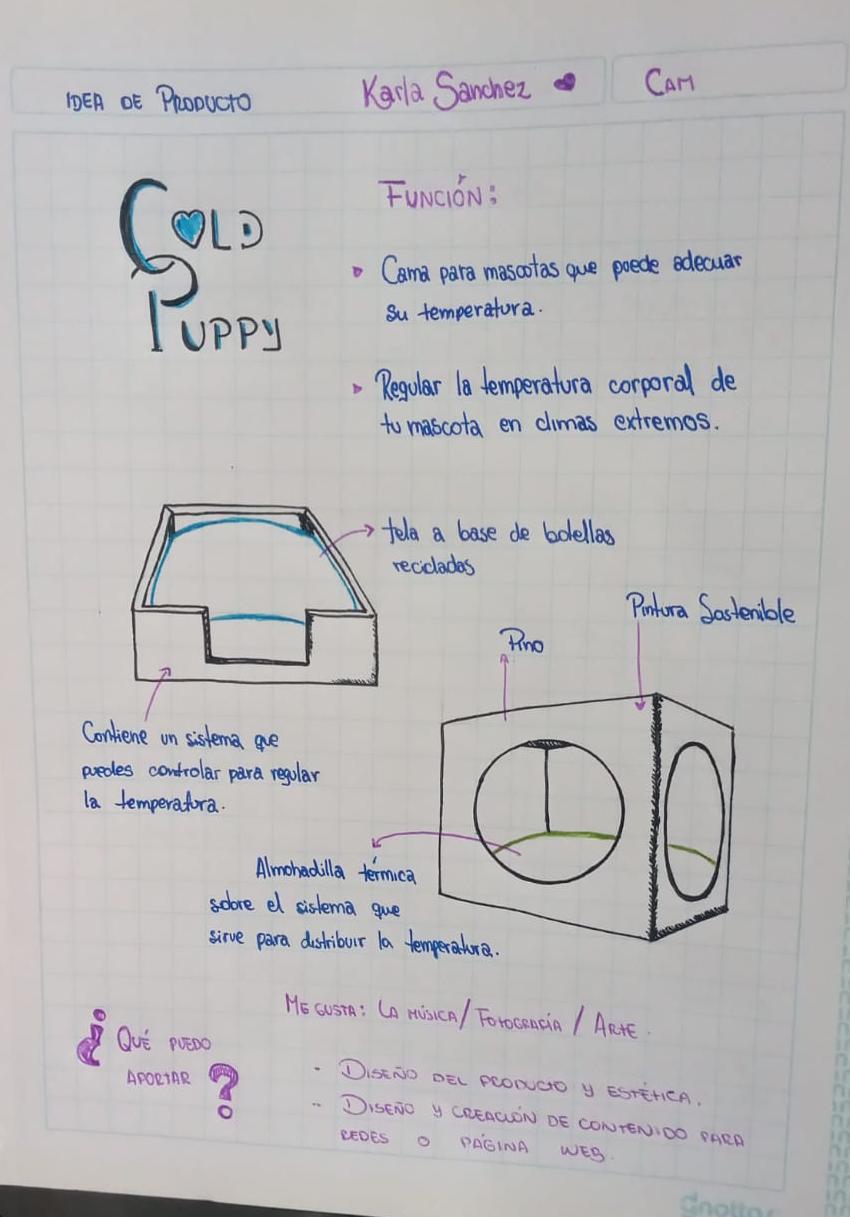 IDEA DE PRODUCTO
Karla Sanchez
CAM
COLD
PUPPY
FUNCIÓN:
Cama para mascotas que puede adecuar
su temperatura.
Regular la temperatura corporal de
tu mascota en climas extremos.
tela a base de botellas
recicladas
Pintura Sostenible
Pino
Contiene un sistema que
puedes controlar para regular
la temperatura.
Almohadilla térmica
sobre el sistema que
sirve para distribuir la temperatura.
ME GUSTA: LA MÚSICA/ FOTOGRAFÍA / ARTE.
¿QUÉ PUEDO
APORTAR?
- DISEÑO DEL PRODUCTO Y ESTÉTICA.
- DISEÑO Y CREACIÓN DE CONTENIDO PARA
REDES O PÁGINA WEB.